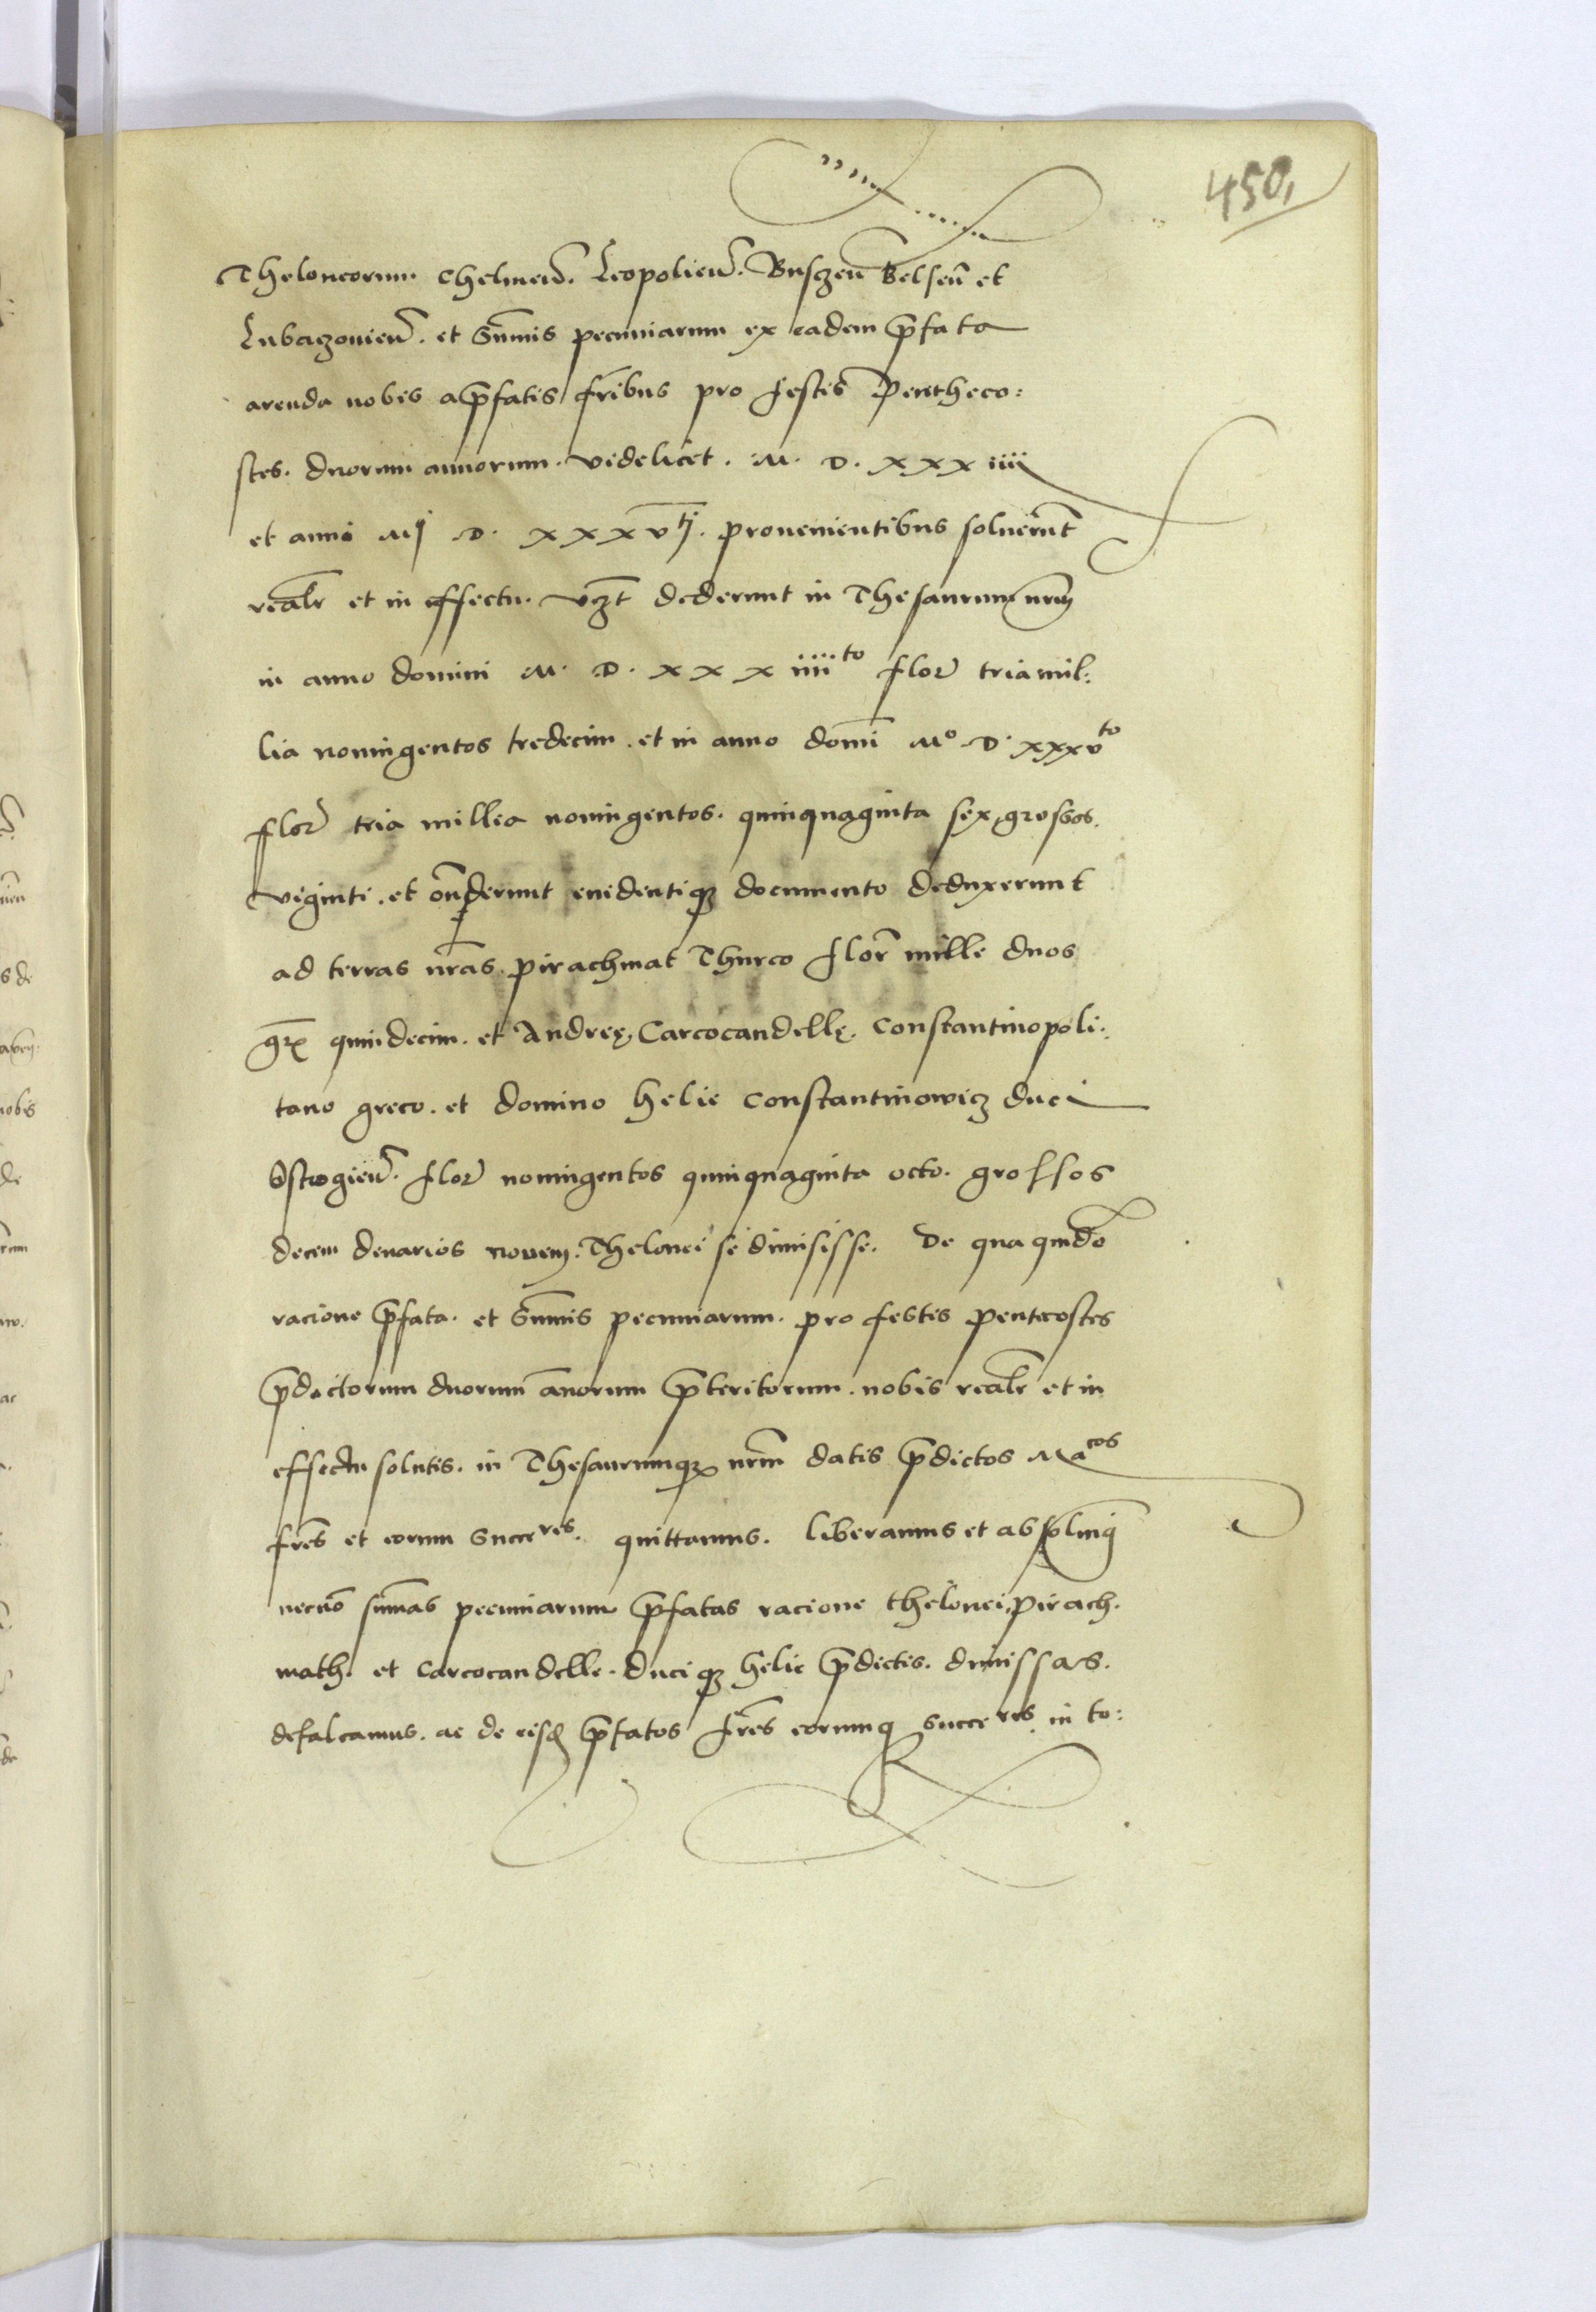 450,
Theloneorum. Chelmen̄. Leopolien̄. Busczen̄ Belsen̄ et
Lubaczovien̄. et Sum̄is pecuniarum ex eadem p̄fata
arenda nobis a p̄fatis fr̄ibus pro festis Pentheco:
stes. duorum annorum. videlicet. M. D. xxx iiii
et anni Mj D. xxxvtj. provenientibus soluerūt
realr̄ et in effectu. vcz̄t dederunt in Thesaurum nr̄m
in anno domini M. D. xxx iiiito flor̄ tria mil:
lia noningentos tredecim. et in anno domī Mo D. xxxvto
flor̄ tria millia noningentos. quinquaginta sex, grossos.
viginti. et on̄derunt euidentiqȝ documento deduxerunt
ad terras nr̄as. Pirachmat Thurco flor̄ mille duos
gr̄ quindecim. et Andreę, Carcocandellę. Constantinopoli:
tano greco. et domino Helie Constantinowicz duci
Ostrogien̄. flor̄ noningentos quinquaginta octo. grossos
decem denarios novem. Thelonei se dimisisse. De qua quidē
racione p̄fata. et Sum̄is pecuniarum. pro festis pentecostes
p̄dictorum duorum an̄orum p̄teritorum. nobis realr̄ et in
effectu solutis. in Thesaurumqȝ nr̄m datis p̄dictos Macos
fr̄es et eorum Succres. quittamus. liberamus et absoluimꝗ
necnō sum̄as pecuniarum p̄fatas racione thelonei, Pirach.
math. et Carcocandelle. duciqȝ Helie p̄dictis. dimissas.
defalcamus. ac de eisd̄ p̄fatos fr̄es eorumq succeres in to: